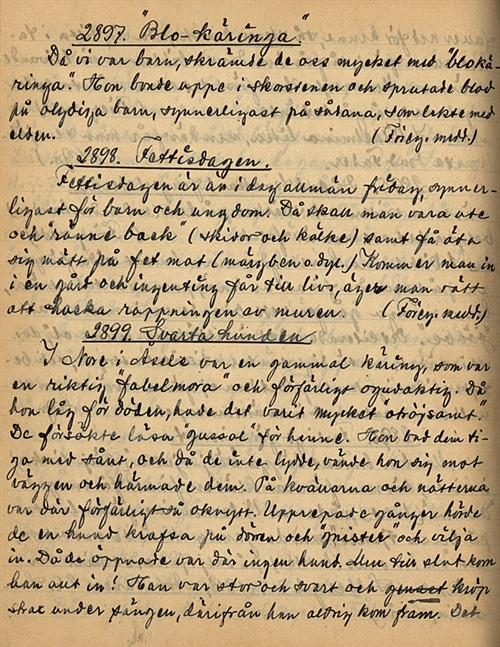 2897. "Blo-käringa."
Då vi var barn, skrämde de oss mycket med "blokä-
ringa." Hon bodde uppe i skorstenen och sprutade blod
på olydiga barn, synnerligast på sådana, som lekte med
elden. (Föreg. medd.)
2898. Fettisdagen.
Fettisdagen är än i dag allmän fridag, synner-
ligast för barn och ungdom. Då skall man vara ute
och "ränne back" (skidor och kälke) samt få äta
sig mätt på fet mat (märgben o.dyl.) Kommer man in
i en gård och ingenting får till livs, äger man rätt
att hacka rappningen av muren. (Föreg. medd.)
2899. Svarta hunden.
I Nore i Åsele var en gammal käring, som var
en riktig "fabelmora" och förfärligt ogudaktig. Då
hon låg för döden, hade det varit mycket "otrögsamt".
De försökte läsa "gussol" för henne. Hon bad dem ti-
ga med sånt, och då de inte lydde, vände hon sig mot
väggen och härmade dem. På kvällarna och nätterna
var där förfärligt så okvytt. Upprepade gånger hörde
de en hund krafsa på dören och "gnister" och vilja
in. Då de öppnade var där ingen hund. Men till slut kom
han int in! Han var stor och svart och genast kröp
strax under sängen, därifrån han aldrig kom fram. Det